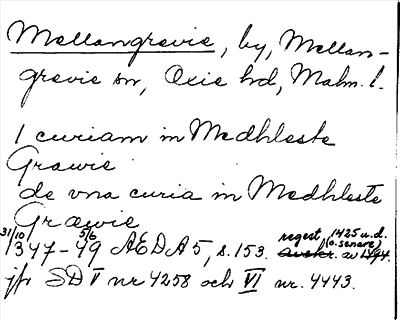 Mellangrevie, by, Mellan-
grevie sn, Oxie hd, Malm. l.
1 curiam in Medhleste
Grawie
de vna curia in Medhleste
Græwie
31/10 1347-5/6 49 ÆDA 5, s. 153. regest, 1425 u.d. (o. senare) av 1494.
jfr SD V nr 4258 och VI nr. 4443.